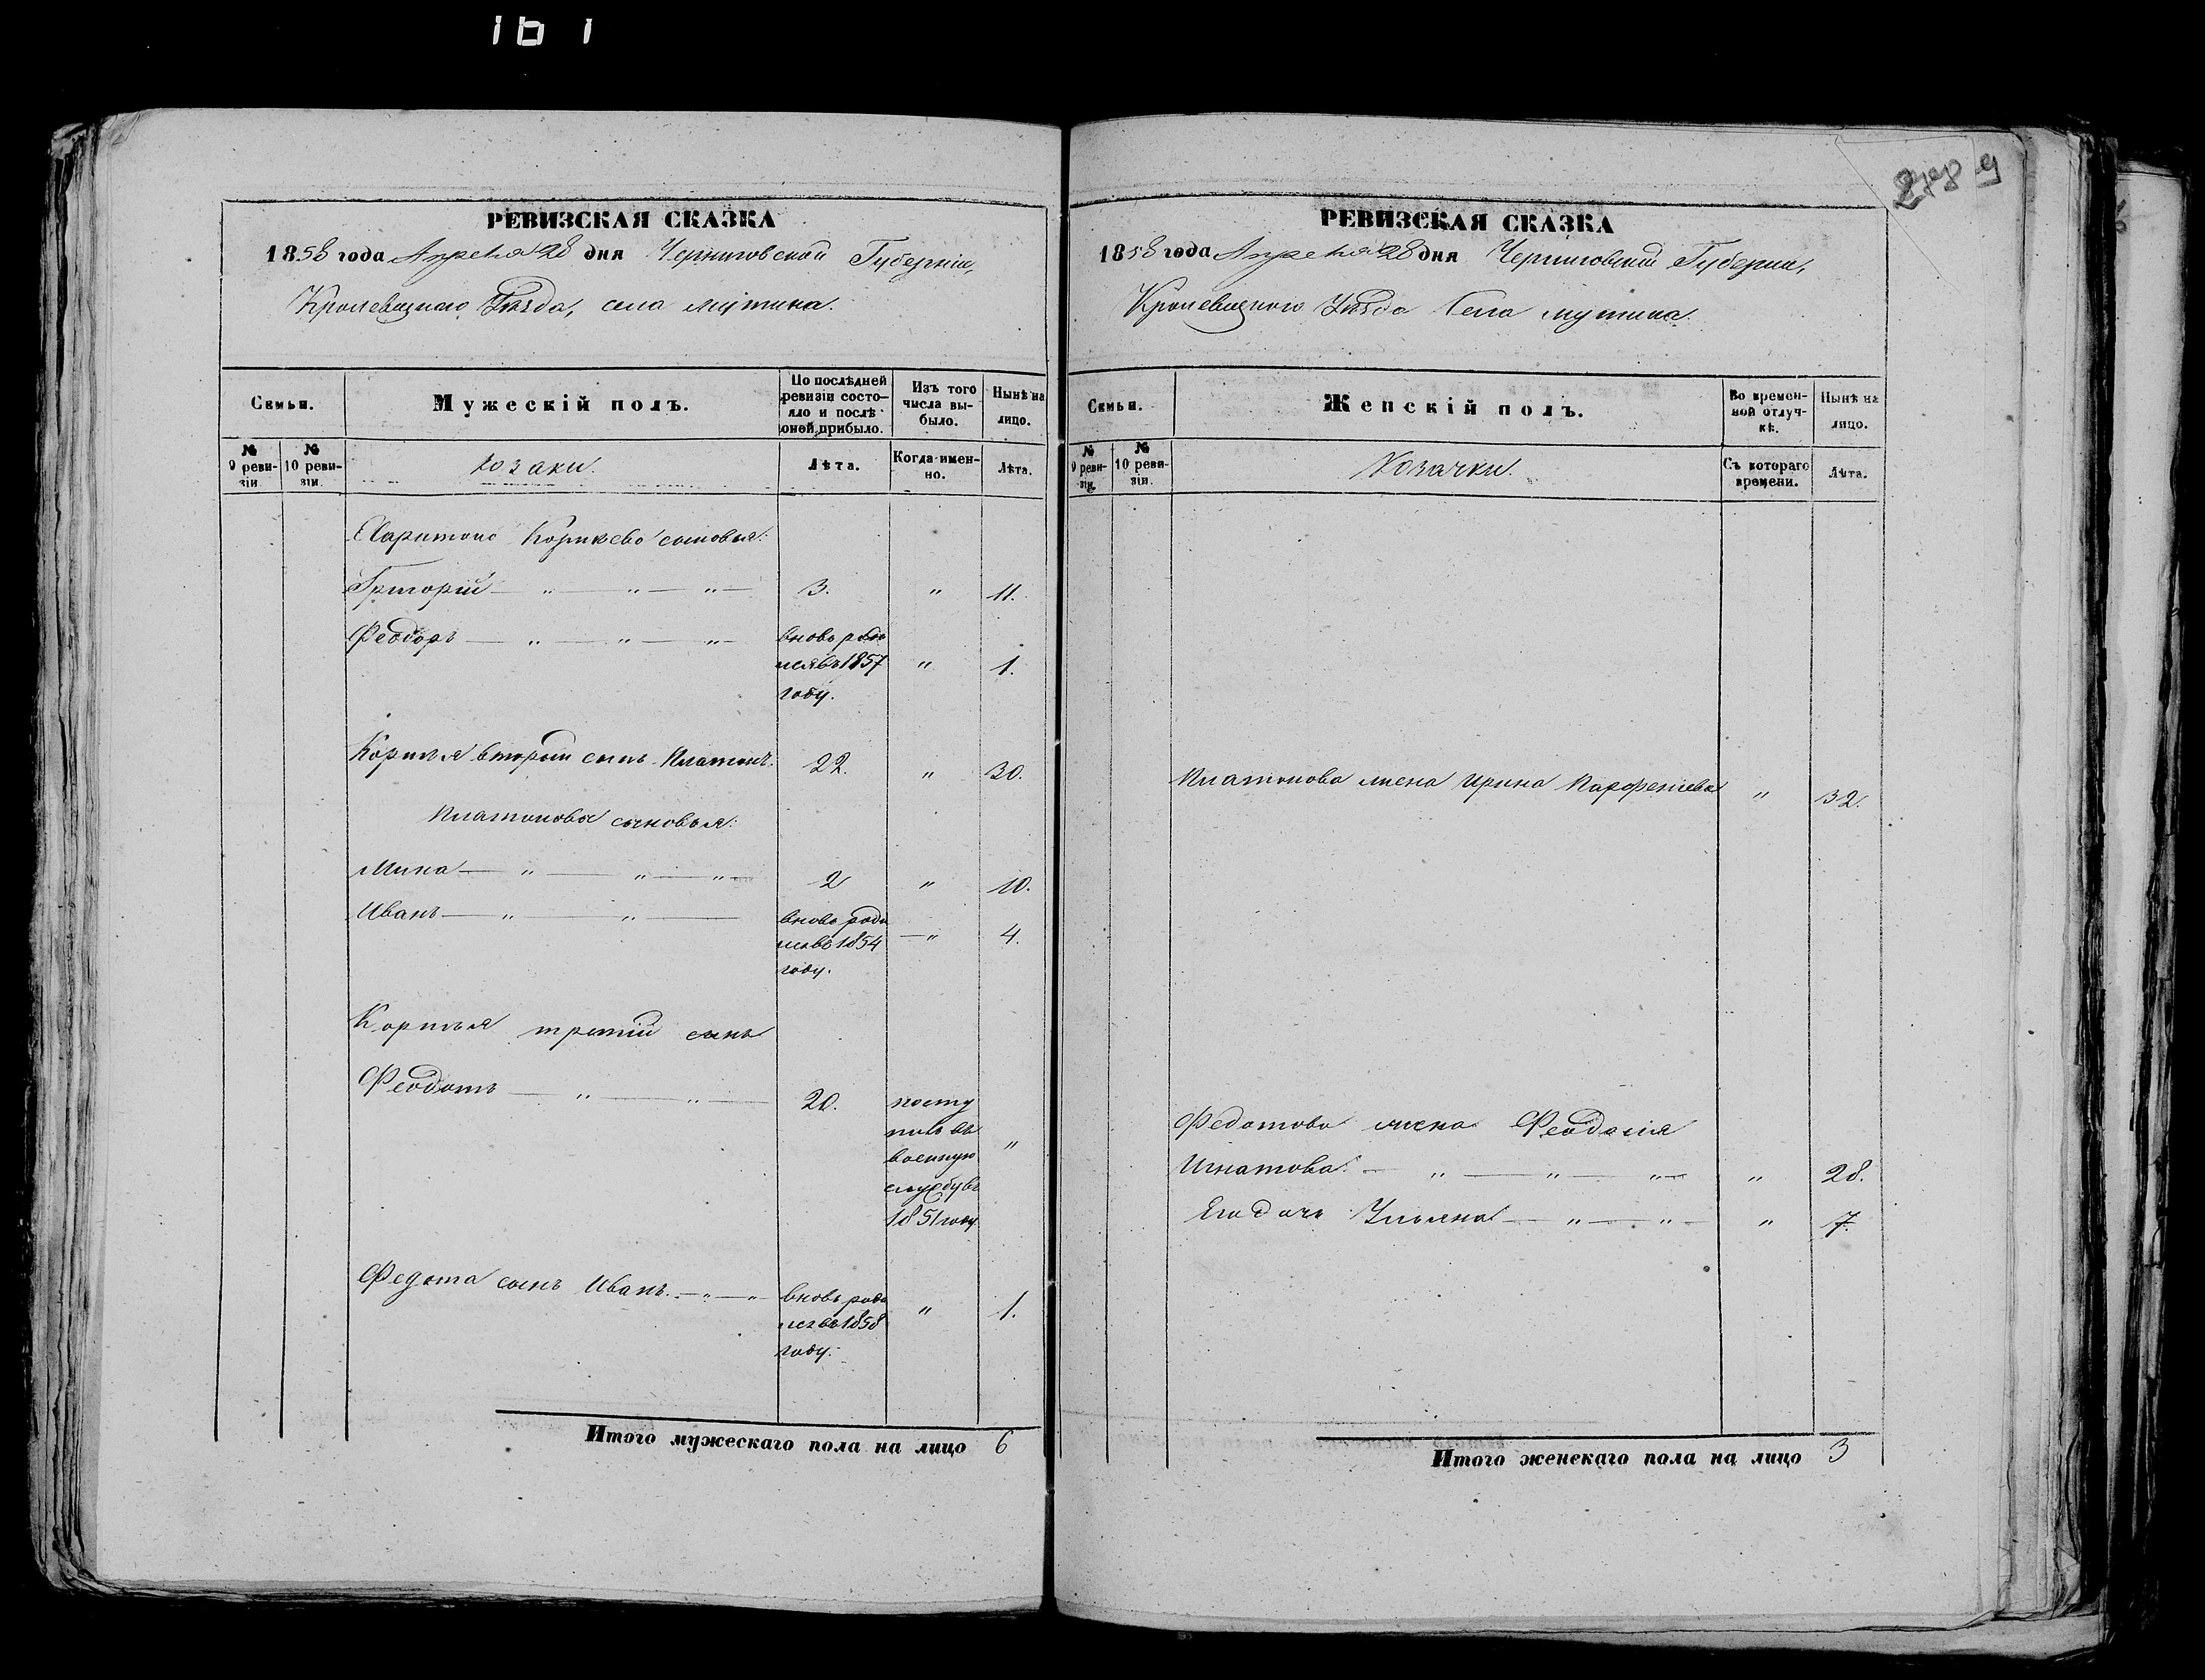 161
РЕВИЗСКАЯ СКАЗКА
1858 года Апреля 28 дня Черниговской Губерніи,
Кролевецкаго Уѣзда, села Мутина.
Семьи.
Мужескій полъ.
По послѣдней ревизіи состояло и послѣ оной прибыло.
Изъ того числа выбыло.
Нынѣ на лицо.
№ 9 ревизіи.
№ 10 ревизіи.
Козаки.
Лѣта.
Когда именно.
Лѣта.
Харитона сыновья:
Григорій — „ — „ — „ — 3. „ 11.
Феодоръ — „ — „ — „ — вновь роди
лся въ 1857 „ 1.
году.
Корнѣя вторый сынъ Платонъ. 22. „ 30.
Платонова сыновья:
Мина — „ — „ — „ — 2 „ 10.
Иванъ — „ — „ — вновь роди
лся въ 1854 — „ 4.
году.
Корнѣя третій сынъ
Феодотъ — „ — „ — 20. посту
пилъ въ
военную „
службу въ
1851 году
Федота сынъ Иванъ. — „ — „ вновь роди
лся въ 1858 „ 1.
году.
Итого мужескаго пола на лицо 6
РЕВИЗСКАЯ СКАЗКА
1858 года Апреля 28 дня Черниговской Губерніи,
Кролевецкого Уѣзда Села Мутина.
Семьи.
Женскій полъ.
Во временной отлучкѣ.
Нынѣ на лицо.
№ 9 ревизіи.
№ 10 ревизіи.
Козачки.
Съ котораго времени.
Лѣта.
Платонова жена Ирина Парфеніева „ 32.
Федотова жена Феодосія
Игнатова — „ — „ — „ — „ 28.
Его дочь Ульяна — „ — „ — „ 7.
Итого женскаго пола на лицо 3